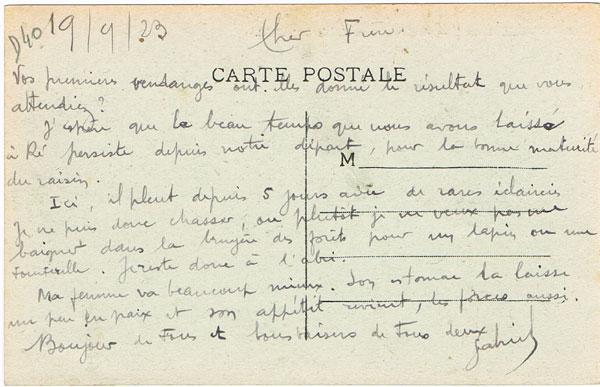 D40 19/9/23
Cher
CARTE POSTALE
Vos premiers vendanges ont elles donné le résultat que vous
attendiez?
J'espère que le beau temps que nous avons laissé
à Ré persiste depuis notre départ, pour la bonne maturité
du raisin.
M
Ici, il pleut depuis 5 jours avec de rares éclaircies
Je ne puis donc chasser, ou plutôt je ne veux pas me
baigner dans la bruyère des forêts pour un lapin ou une
. Je reste donc à l'abri.
Ma femme va beaucoup mieux. Son estomac la laisse
un peu en paix et son appétit revient, les forces aussi.
Bonjour de Tous et bons baisers de Tous deux
Gabriel